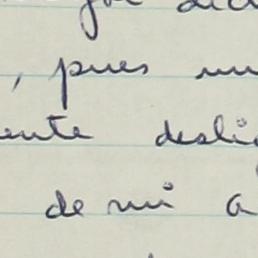 , pues un
ente desli
de mi a